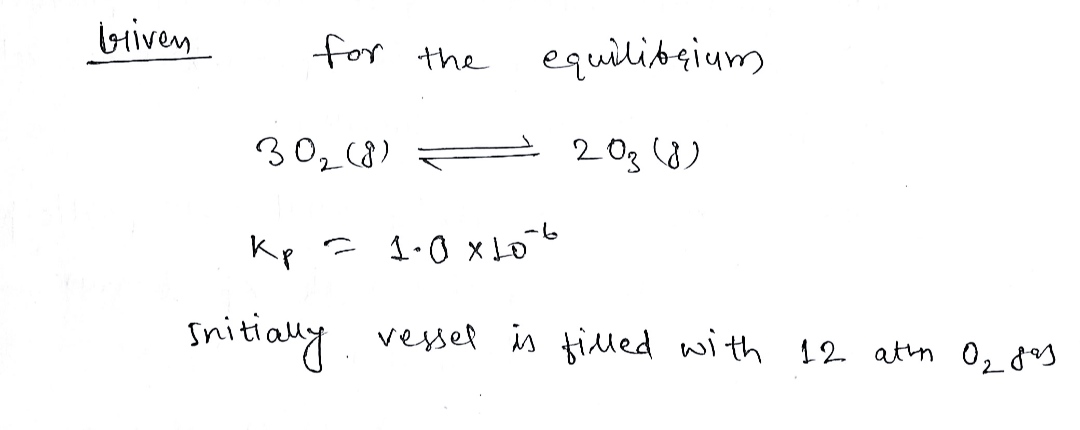 Given for the equilibrium
3O₂(g) ⇌ 2O₃(g)
Kp = 1.0 × 10⁻⁶
Initially vessel is filled with 12 atm O₂ gas